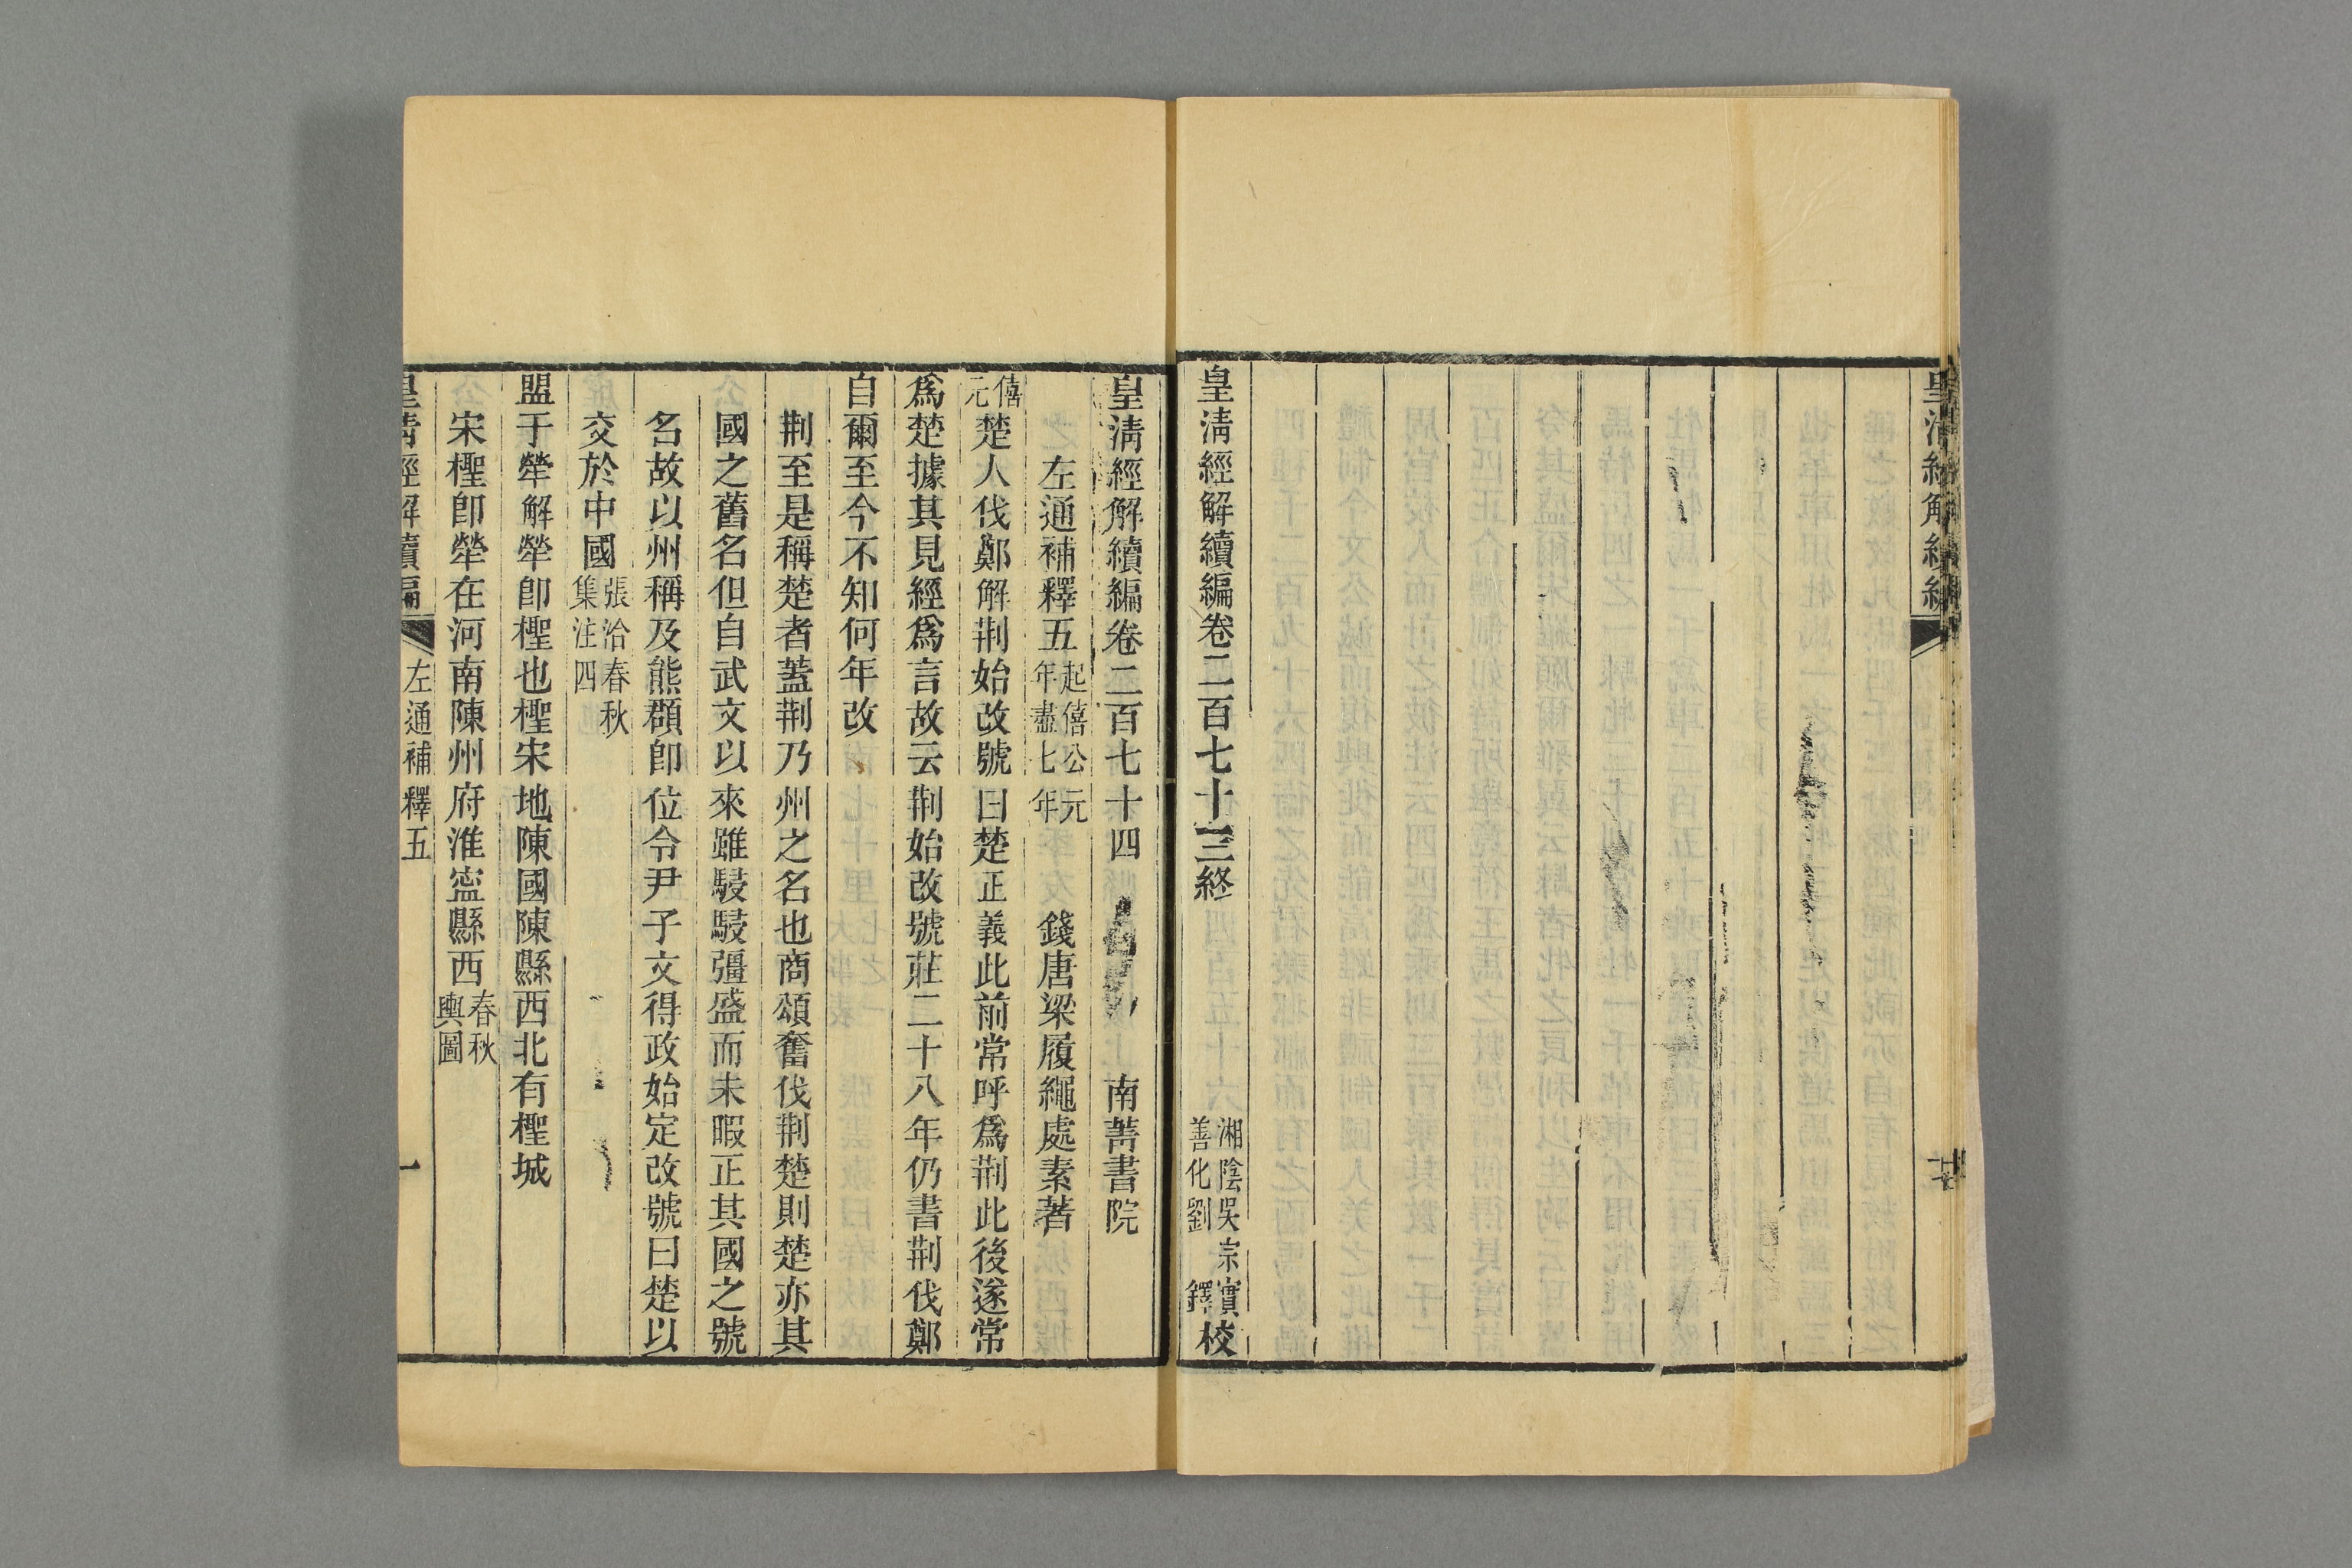 皇清經解續編
皇清經解續編卷二百七十三終
湘陰吳宗實
善化劉 鐸
校
皇清經解續編卷二百七十四 南菁書院
左通補釋五
起僖公元
年盡七年
錢唐梁履繩處素著
僖
元
楚人伐鄭解荆始改號曰楚正義此前常呼爲荆此後遂常
爲楚據其見經爲言故云荆始改號莊二十八年仍書荆伐鄭
自爾至今不知何年改
荆至是稱楚者蓋荆乃州之名也商頌奮伐荆楚則楚亦其
國之舊名但自武文以來雖駸駸彊盛而未暇正其國之號
名故以州稱及熊頵卽位令尹子文得政始定改號曰楚以
交於中國
張洽春秋
集注四
盟于犖解犖卽檉也檉宋地陳國陳縣西北有檉城
宋檉卽犖在河南陳州府淮寧縣西
春秋
輿圖
皇清經解續編
左通補釋五
一